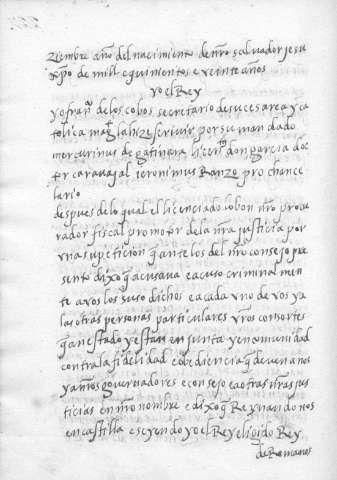 ziembre año del nacimiento de nro salvador jesu
xpo de mill e quinientos e veinte años
yo el Rey
yo franco de los cobos secretario de su cesarea y ca
tolica magt la hize screvir por su mandado
mercurinus de gatinara licentus don garcia doc
tor caravajal ieronimus Ranzo pro chance
lario
despues de lo qual el licenciado lobon nro procu
rador fiscal promotor de la nra justicia por
vna su peticion q ante los del nro consejo pre
sento dixo q acusava e acuso criminalmen
te a vos los suso dichos e a cada vno de vos y a
las otras personas particulares vros consortes
q an estado y estan en junta y en comunidad
contra la fidelidad e obediencia q deven a nos
y a nros governadores e consejo e a otras nras jus
ticias en nro nombre e dixo q Reynando nos
en castilla e syendo yo el Rey eligido Rey
de Romanos